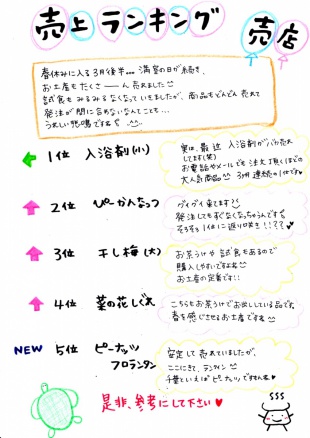 売上ランキング
売店
春休みに入る3月後半… 満室の日が続き、
お土産もたくさーーん売れました
試食もみるみるなくなっていきましたが、商品もどんどん売れて
発注が間に合わないなんてことも…
うれしい悲鳴ですね
1位 入浴剤(小)
実は、最近入浴剤がバカ売れ
してます(笑)
お電話やメールでも注文頂くほどの
大人気商品 3ヶ月連続の1位です
2位 ぴーかんなっつ
グイグイ来てます?!
発注してもすぐなくなっちゃうんです
そろそろ1位に返り咲き!!??
3位 干し梅(大)
お茶うけや試食もあるので
購入しやすいですよね
お土産の定番です!!
4位 菜の花しぐれ
こちらもお茶うけでお出ししている品です。
春を感じさせるお土産ですね
NEW 5位 ピーナッツ
フロランタン
安定して売れていましたが、
ここにきて、ランクイン
千葉といえばピーナッツですもんね
是非、参考にして下さい